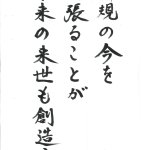 現の今を
張ることが
来の来世も創造